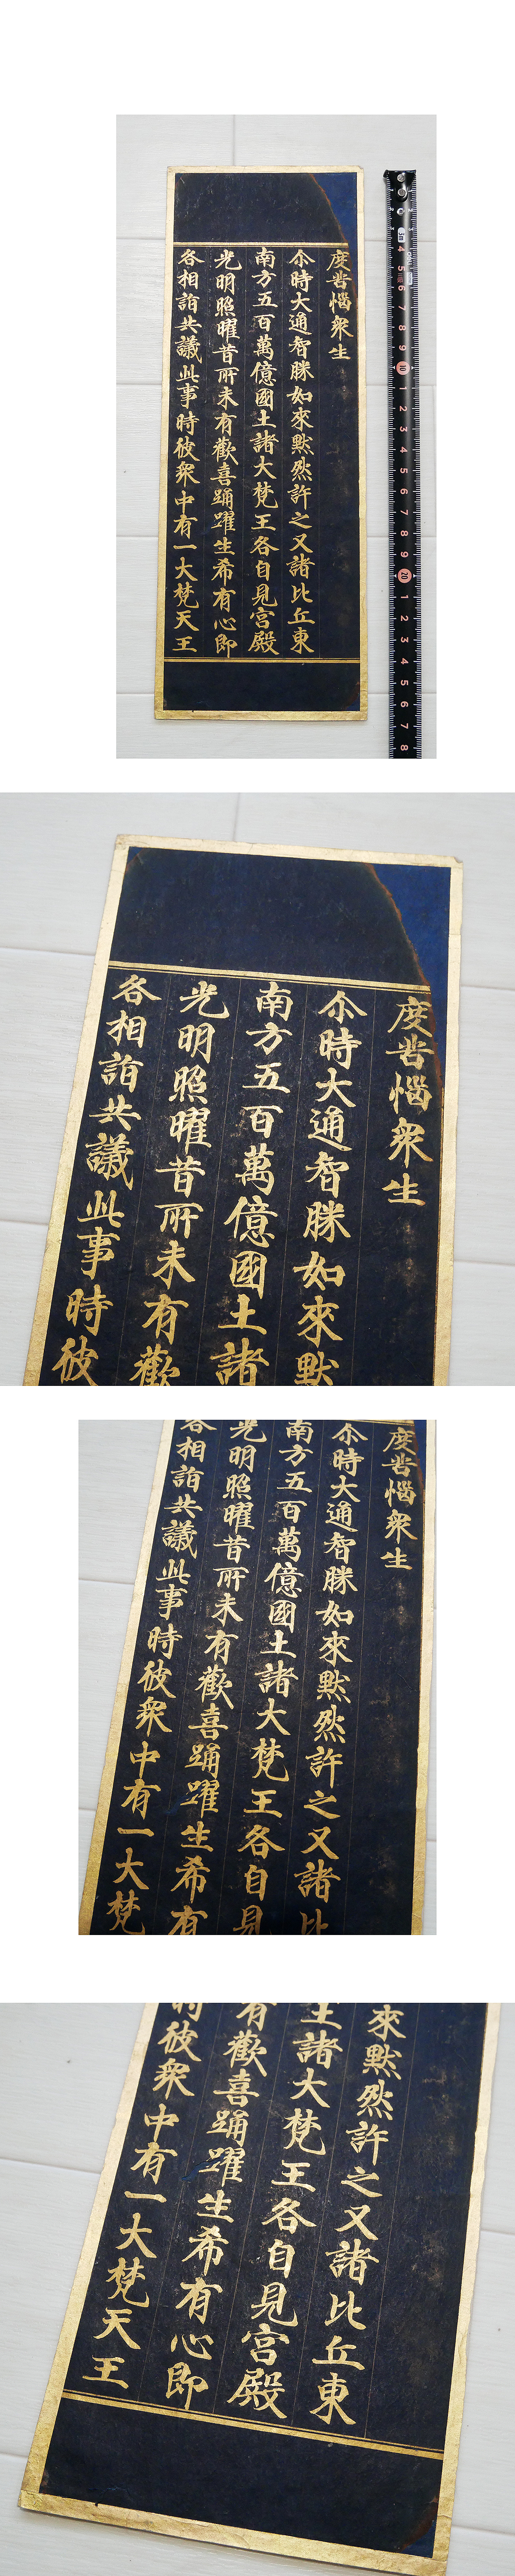 度苦惱衆生
尒時大通智勝如來默然許之又諸比丘東
南方五百萬億國土諸大梵王各自見宮殿
光明照曜昔所未有歡喜踊躍生希有心即
各相詣共議此事時彼衆中有一大梵天王
3m
4 5 6 7 8 9 10 1 2 3 4 5 6 7 8 9 20 1 2 3 4 5 6 7 8
度苦惱衆生
尒時大通智勝如來默
南方五百萬億國土諸
光明照曜昔所未有歡
各相詣共議此事時彼
度苦惱衆生
尒時大通智勝如來默然許之又諸比
南方五百萬億國土諸大梵王各自見
光明照曜昔所未有歡喜踊躍生希有
各相詣共議此事時彼衆中有一大梵
來默然許之又諸比丘東
土諸大梵王各自見宮殿
有歡喜踊躍生希有心即
時彼衆中有一大梵天王